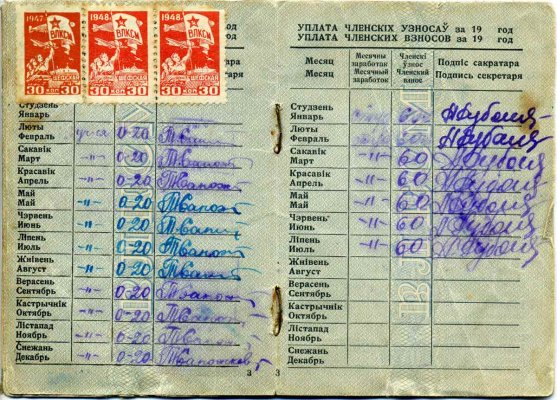 1947
ВЛКСМ
ШЕФСКАЯ
30 КОП 30
1948
ВЛКСМ
ШЕФСКАЯ
30 КОП 30
1948
ВЛКСМ
ШЕФСКАЯ
30 КОП 30
Студзень
Январь
Люты
Февраль 0-20
Сакавік
Март -"- 0-20
Красавік
Апрель -"- 0-20
Май
Май -"- 0-20
Чэрвень
Июнь -"- 0-20
Ліпень
Июль -"- 0-20
Жнівень
Август -"- 0-20
Верасень
Сентябрь -"- 0-20
Кастрычнік
Октябрь -"- 0-20
Лістапад
Ноябрь -"- 0-20
Снежань
Декабрь -"- 0-20
3
УПЛАТА ЧЛЕНСКІХ УЗНОСАЎ за 19 год
УПЛАТА ЧЛЕНСКИХ ВЗНОСОВ за 19 год
Месяц Месячны заработак Членскі ўзнос Подпіс сакратара
Месяц Месячный заработок Членский взнос Подпись секретаря
Студзень
Январь
Люты
Февраль
Сакавік
Март -"- 60
Красавік
Апрель -"- 60
Май
Май -"- 60
Чэрвень
Июнь -"- 60
Ліпень
Июль -"- 60
Жнівень
Август
Верасень
Сентябрь
Кастрычнік
Октябрь
Лістапад
Ноябрь
Снежань
Декабрь
3